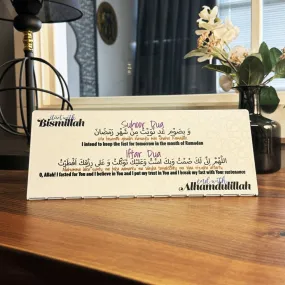 start with
Bismillah
Suhoor Dua
وَ بِصَوْمِ غَدٍ نَّوَيْتُ مِنْ شَهْرِ رَمَضَانَ
I intend to keep the fast for tomorrow in the month of Ramadan
Iftar Dua
اَللّٰهُمَّ اِنِّی لَكَ صُمْتُ وَبِكَ اٰمَنْتُ وَعَلَيْكَ تَوَكَّلْتُ وَ عَلٰی رِزْقِكَ اَفْطَرْتُ
O, Allah! I fasted for You and I believe in You and I put my trust in You and I break my fast with Your sustenance
end with
Alhamdulillah